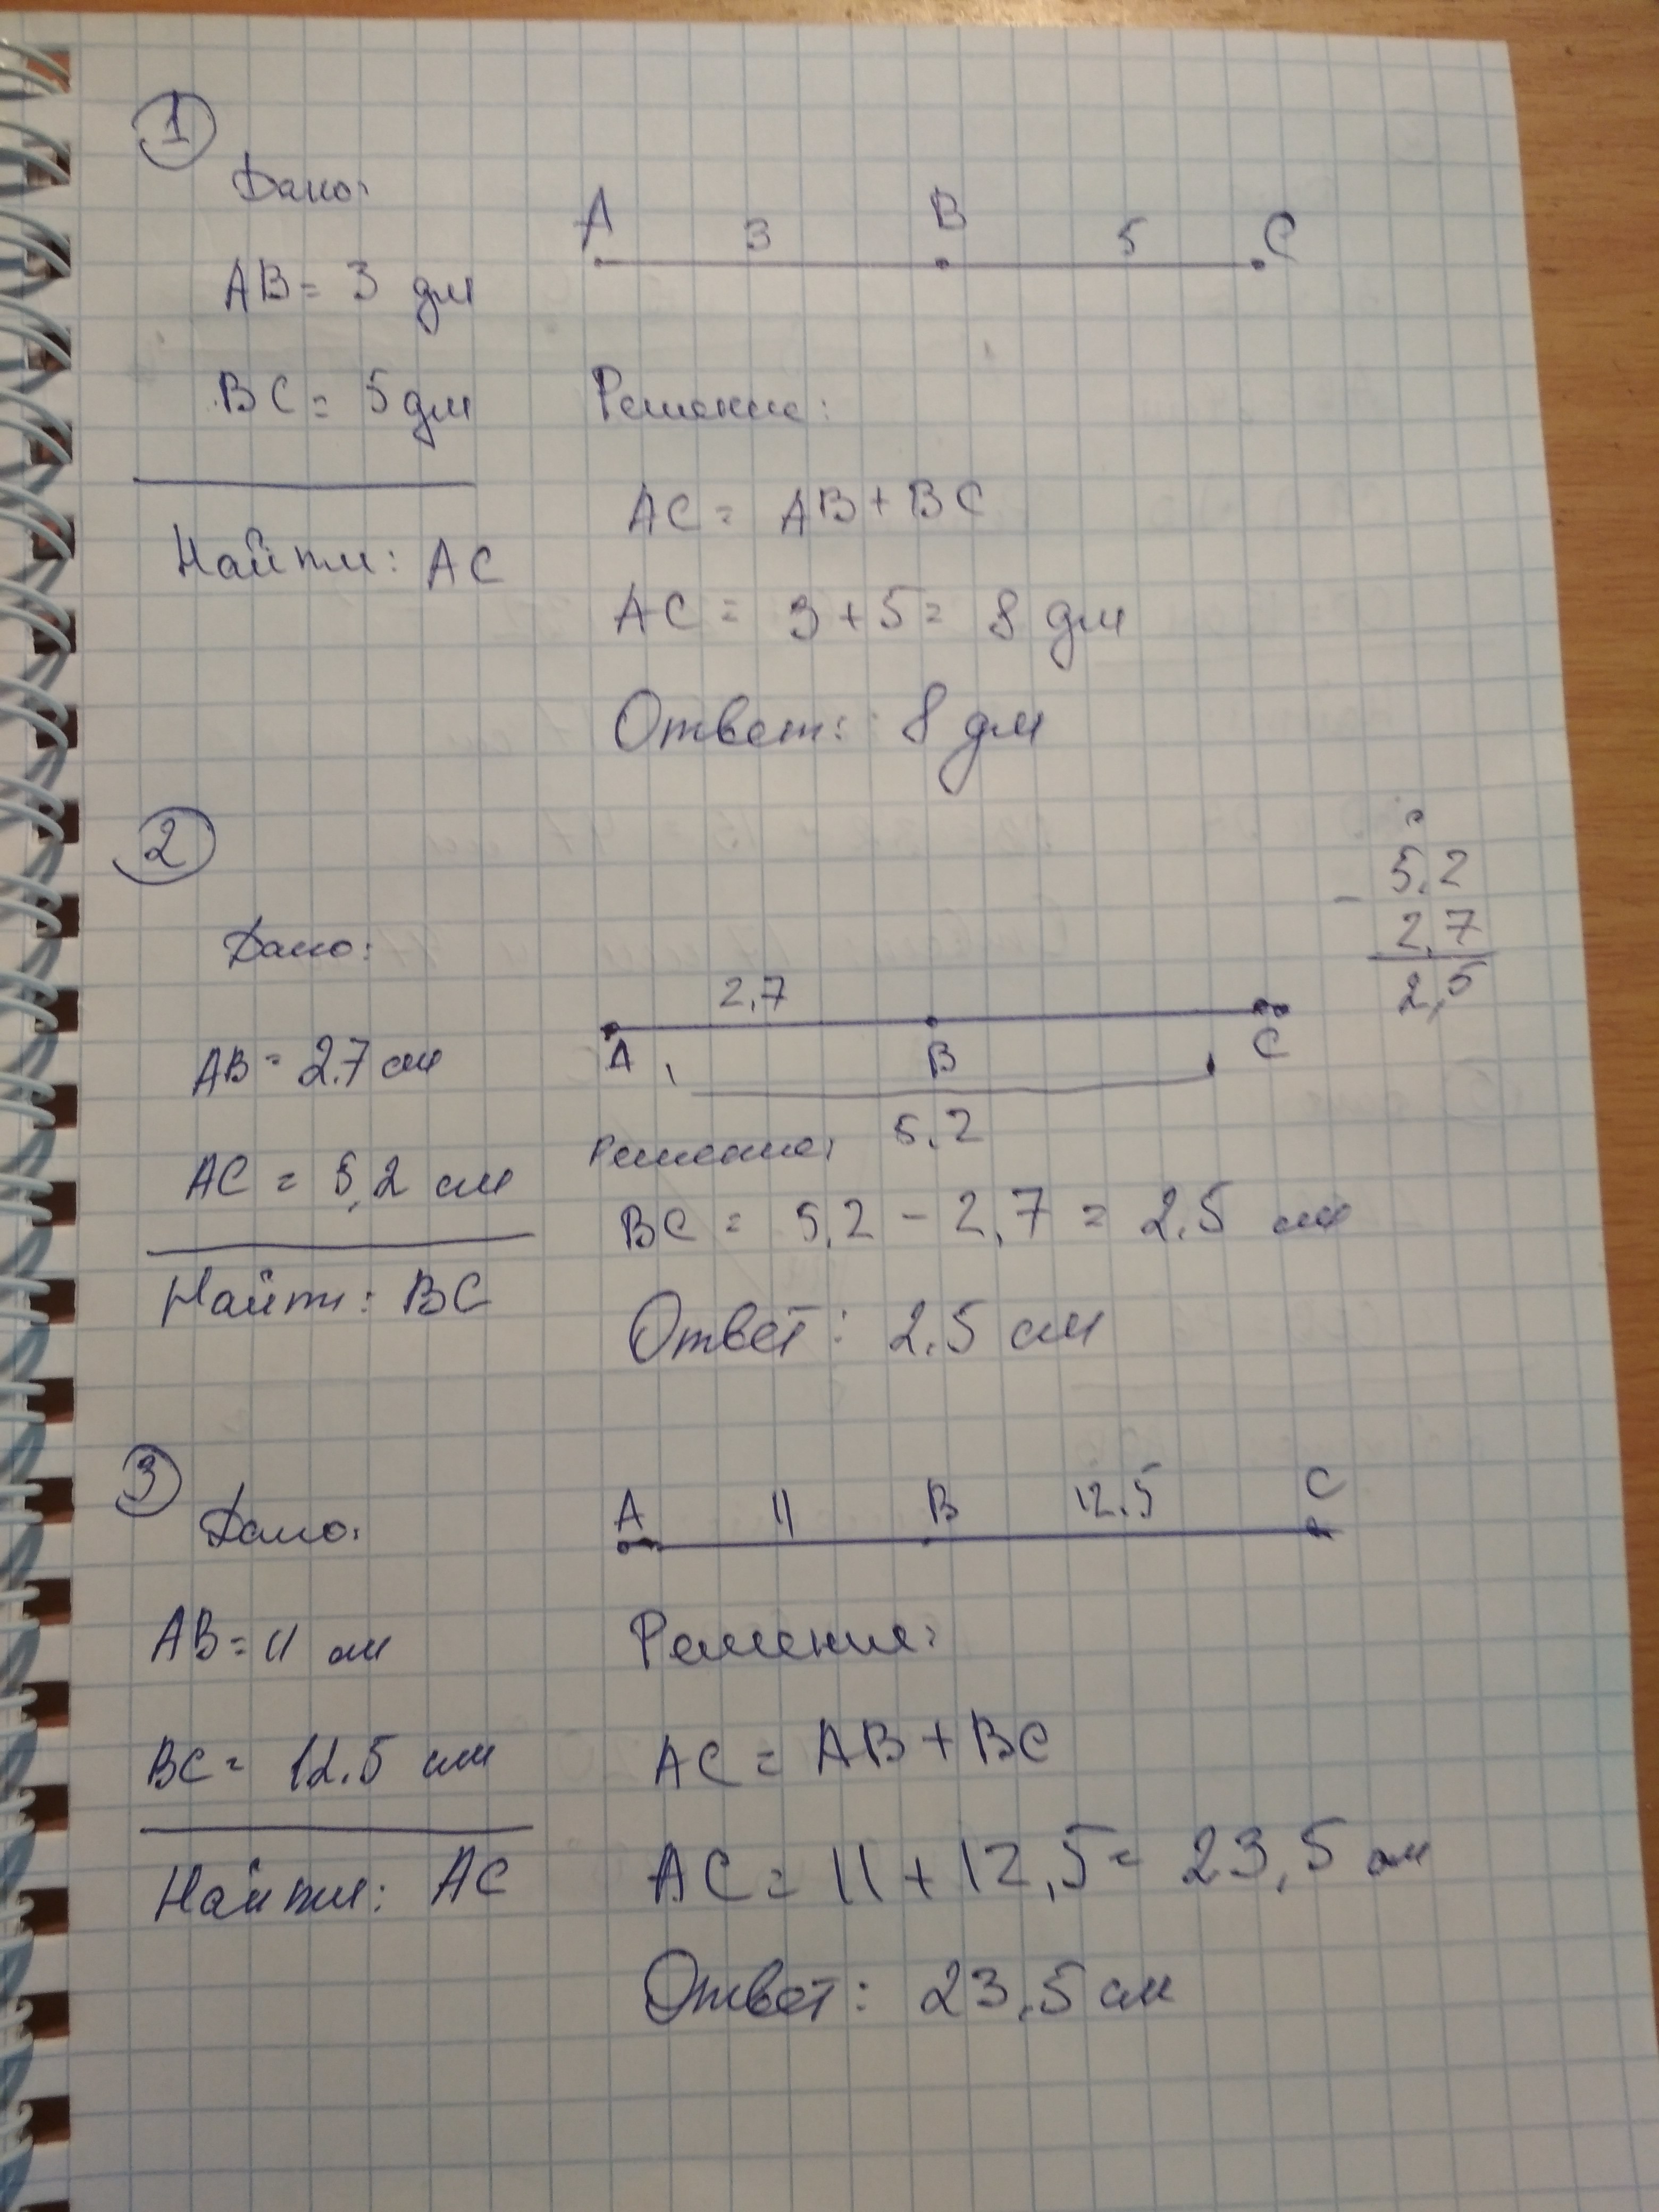 1
Дано:
A 3 B 5 C
AB = 3 дм
BC = 5 дм
Решение:
Найти: AC
AC = AB + BC
AC = 3 + 5 = 8 дм
Ответ: 8 дм
2
Дано:
5,2
- 2,7
2,5
2,7
A B C
5,2
AB = 2,7 см
AC = 5,2 см
Найти: BC
Решение:
BC = 5,2 - 2,7 = 2,5 см
Ответ: 2,5 см
3
Дано:
A 11 B 12,5 C
AB = 11 см
BC = 12,5 см
Найти: AC
Решение:
AC = AB + BC
AC = 11 + 12,5 = 23,5 см
Ответ: 23,5 см